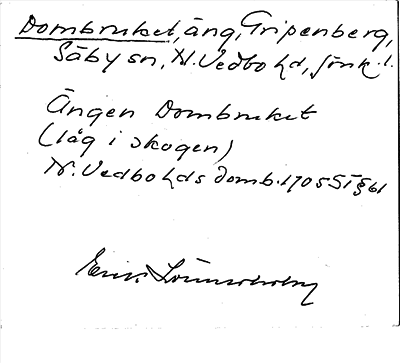 Dombruket, äng, Gripenberg,
Säby sn, N. Vedbo hd, Jönk. l.
Ängen Dombruket
(låg i skogen)
N. Vedbo hds domb. 1705 ST § 61
Erik